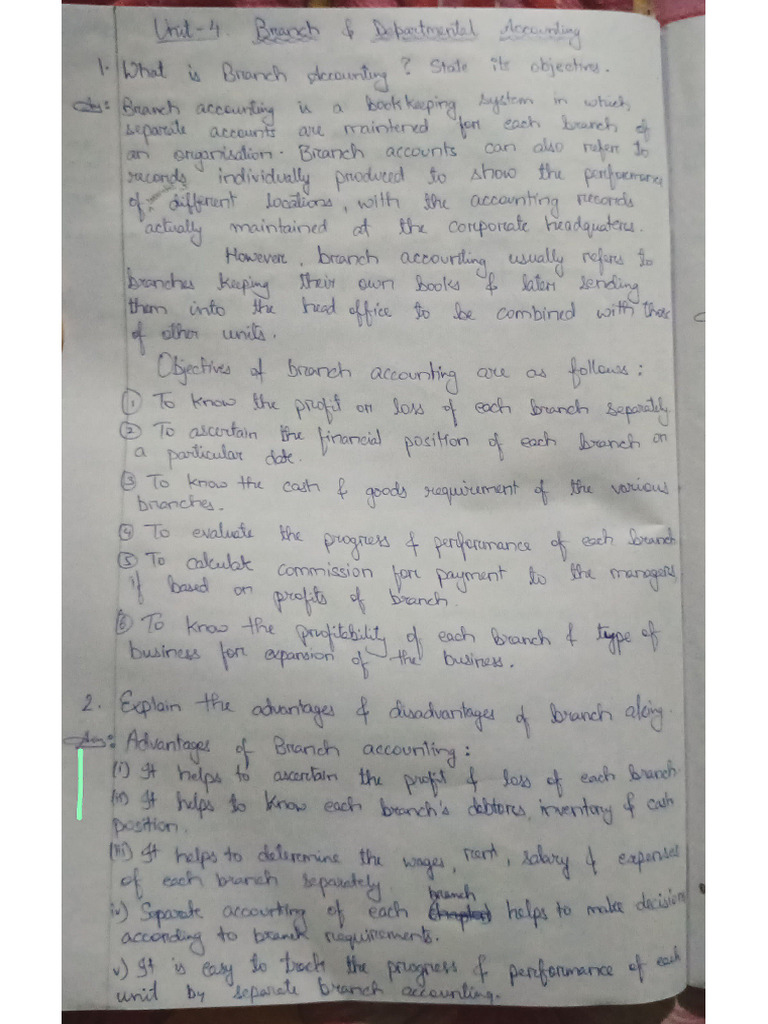 Unit-4. Branch & Departmental Accounting
1. What is Branch Accounting? State its objectives.
Ans: Branch accounting is a bookkeeping system in which
separate accounts are maintened for each branch of
an organisation. Branch accounts can also refer to
records individually produced to show the performance
of different locations, with the accounting records
actually maintained at the corporate headquaters.
However, branch accounting usually refers to
branches keeping their own books & later sending
them into the head office to be combined with those
of other units.
Objectives of branch accounting are as follows:
① To know the profit or loss of each branch separately
② To ascertain the financial position of each branch on
a particular date.
③ To know the cash & goods requirement of the various
branches.
④ To evaluate the progress & performance of each branch
⑤ To calculate commission for payment to the managers,
if based on profits of branch.
⑥ To know the profitability of each branch & type of
business for expansion of the business.
2. Explain the advantages & disadvantages of branch a/cing.
Ans: Advantages of Branch accounting:
(i) It helps to ascertain the profit & loss of each branch
(ii) It helps to know each branch's debtors, inventory & cash
position.
(iii) It helps to determine the wages, rent, salary & expenses
of each branch separately
iv) Separate accounting of each branch helps to make decision
according to branch requirements.
v) It is easy to track the progress & performance of each
unit by separate branch accounting.